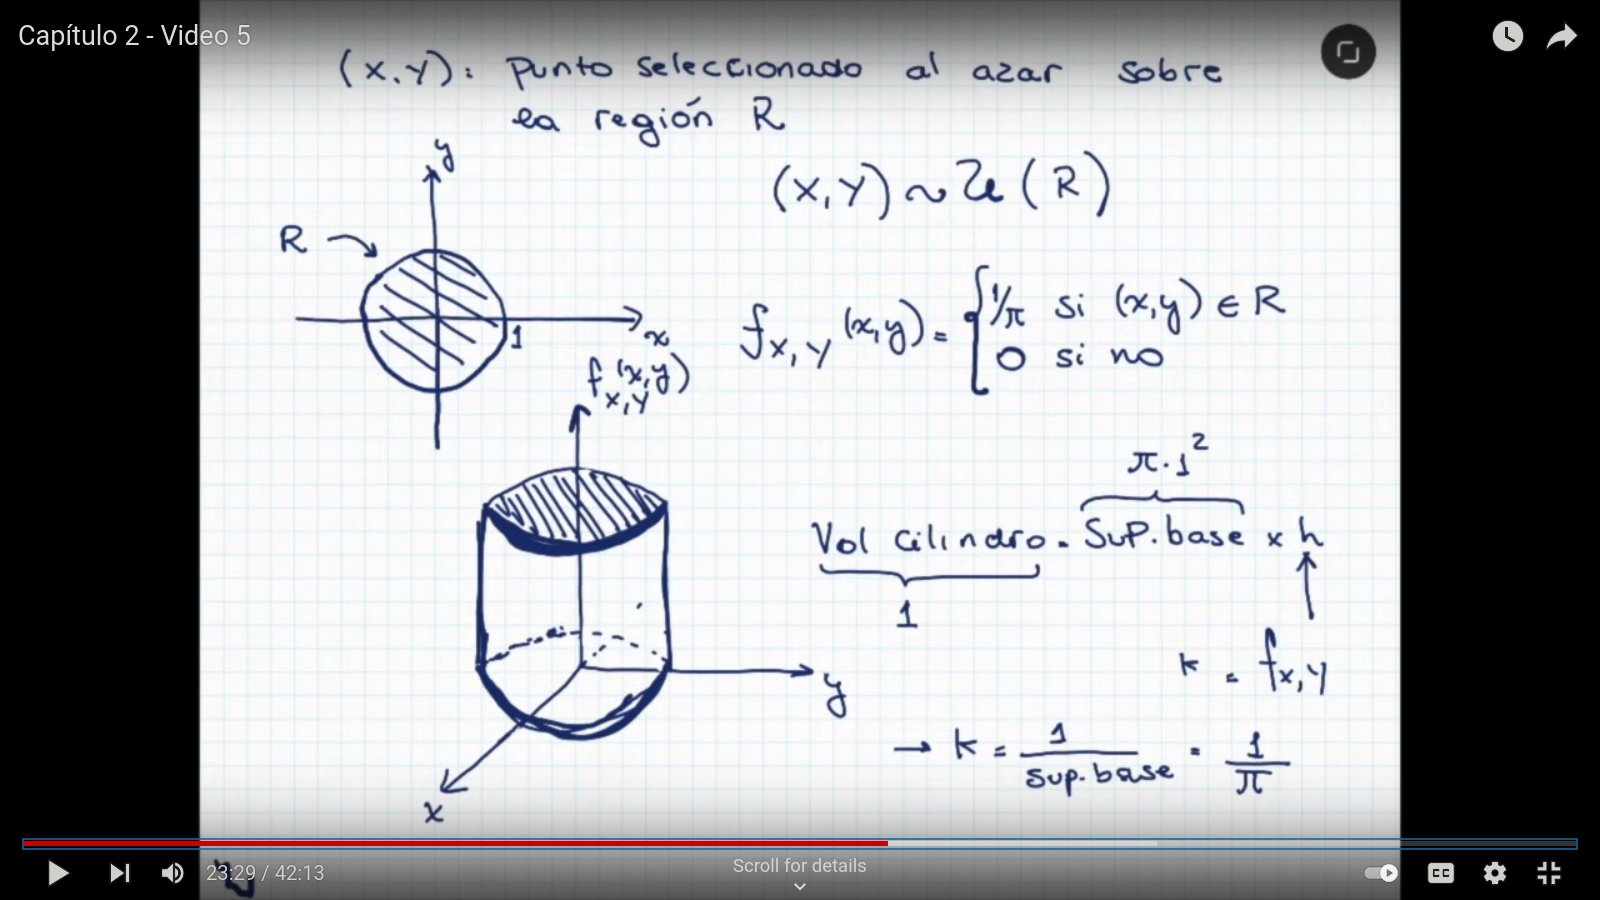 Capítulo 2 - Video 5
(X,Y): Punto seleccionado al azar sobre
la región R
(X,Y) ~ U(R)
y
R
1
x
f X,Y (x,y) = { 1/π si (x,y) ∈ R
0 si no
f X,Y (x,y)
π.1²
Vol cilindro = Sup.base x h
1
k = f X,Y
y
→ k = 1 / sup.base = 1 / π
x
23:29 / 42:13
Scroll for details
CC